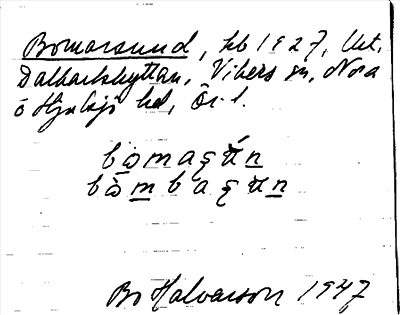 Bomarsund, hb 1927, Ut.
Dalkarlshyttan, Vikers sn, Nora
o Hjulsjö hd, Ör. l.
bomaşun
bòmbaşun
Bo Halvarson 1947